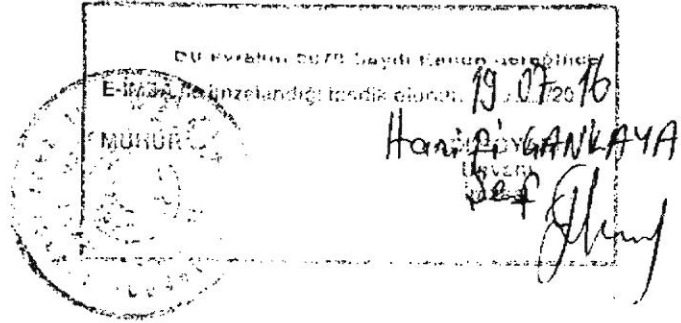 Bu evrakın 5070 Sayılı Kanun gereğince
E-imza ile imzalandığı tasdik olunur. 19.07/2016
MÜHÜR
Hanifi ÇANKAYA
ÜNVANI
Şef